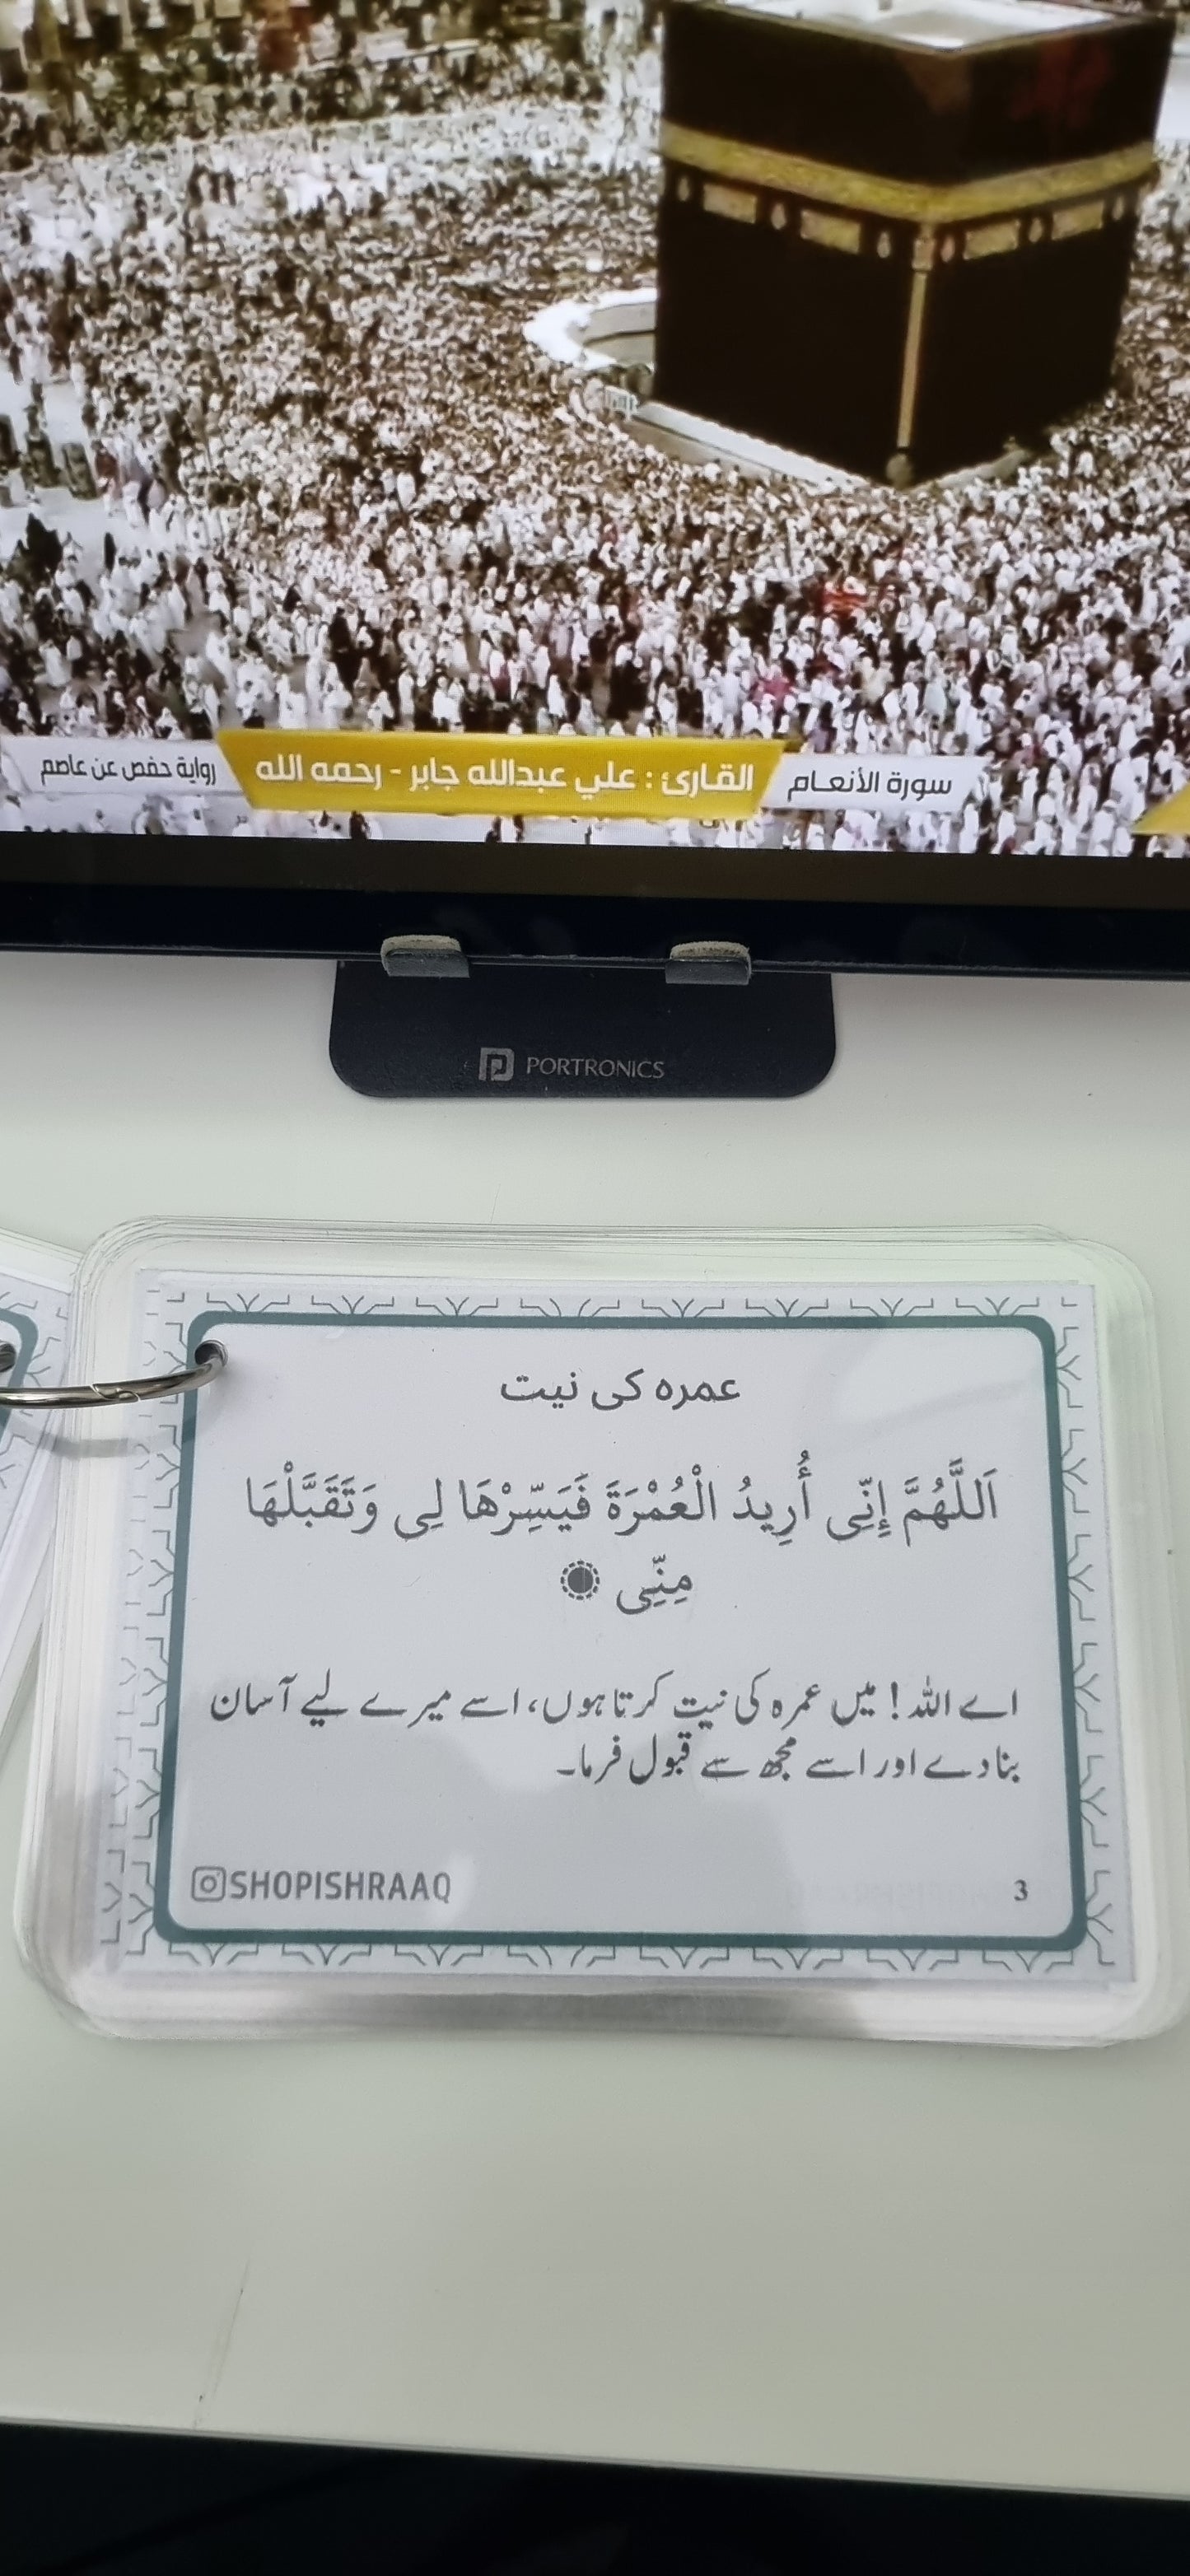 سورة الأنعام
القارئ : علي عبدالله جابر - رحمه الله
رواية حفص عن عاصم
PORTRONICS
عمرہ کی نیت
اَللَّهُمَّ إِنِّی أُرِیدُ الْعُمْرَةَ فَیَسِّرْهَا لِی وَتَقَبَّلْهَا
مِنِّی
اے اللہ! میں عمرہ کی نیت کرتا ہوں، اسے میرے لیے آسان
بنا دے اور اسے مجھ سے قبول فرما۔
SHOPISHRAAQ
3